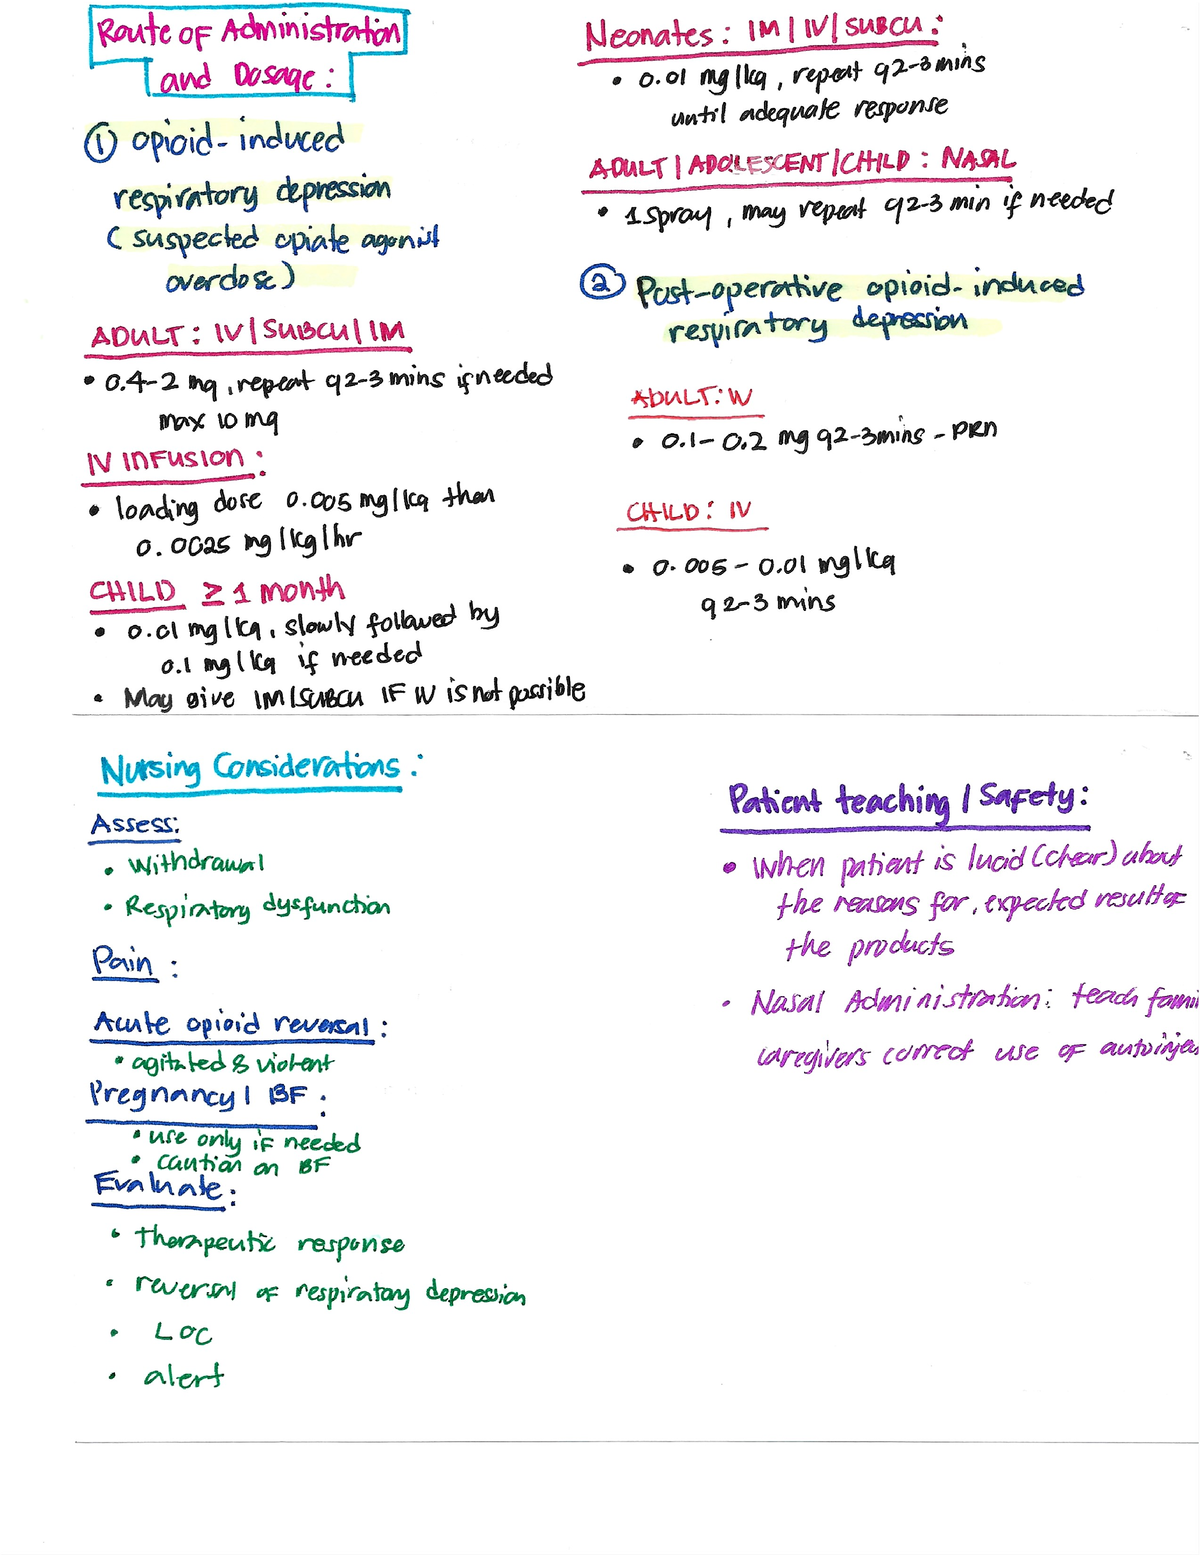 Route of Administration
and Dosage:
① opioid-induced
respiratory depression
(suspected opiate agonist
overdose)
ADULT: IV/SUBCU/IM
• 0.4-2 mg, repeat q2-3 mins if needed
max 10 mg
IV INFUSION:
• loading dose 0.005 mg/kg then
0.0025 mg/kg/hr
CHILD ≥ 1 month
• 0.01 mg/kg, slowly followed by
0.1 mg/kg if needed
• May give IM/SUBCU IF IV is not possible
Neonates: IM/IV/SUBCU:
• 0.01 mg/kg, repeat q2-3 mins
until adequate response
ADULT/ADOLESCENT/CHILD: NASAL
• 1 spray, may repeat q2-3 min if needed
② Post-operative opioid-induced
respiratory depression
ADULT: IV
• 0.1-0.2 mg q2-3mins - PRN
CHILD: IV
• 0.005-0.01 mg/kg
q2-3 mins
Nursing Considerations:
Assess:
• Withdrawal
• Respiratory dysfunction
Pain:
Acute opioid reversal:
• agitated & violent
Pregnancy/BF:
• use only if needed
• caution on BF
Evaluate:
• Therapeutic response
• reversal of respiratory depression
• LOC
• alert
Patient teaching/Safety:
• When patient is lucid (clear) about
the reasons for, expected result of
the products
• Nasal Administration: teach fami
caregivers correct use of autoinjec